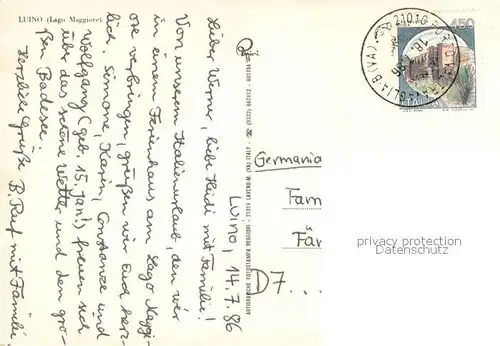 LUINO (Lago Maggiore)
Luino, 14.7.86
Lieber Werner, liebe Heidi mit Familie!
Von unserem Italienurlaub, den wir
in einem Ferienhaus am Lago Maggi-
ore verbringen, grüßen wir Euch herz-
lich. Simone, Karin, Constanze und
Wolfgang (geb. 15. Jan!) freuen sich
über das schöne Wetter und den gro-
ßen Badesee.
Herzliche Grüße B. Ruf mit Familie
ARTIGRAFICHE FOTOSTAMPA REGGIORI - 21014 LAVENO-M. (VA) ITALY - ☎ (0332)
450
ITALIA
21010
Germania
Fam
Fär
D7...
privacy protection
Datenschutz